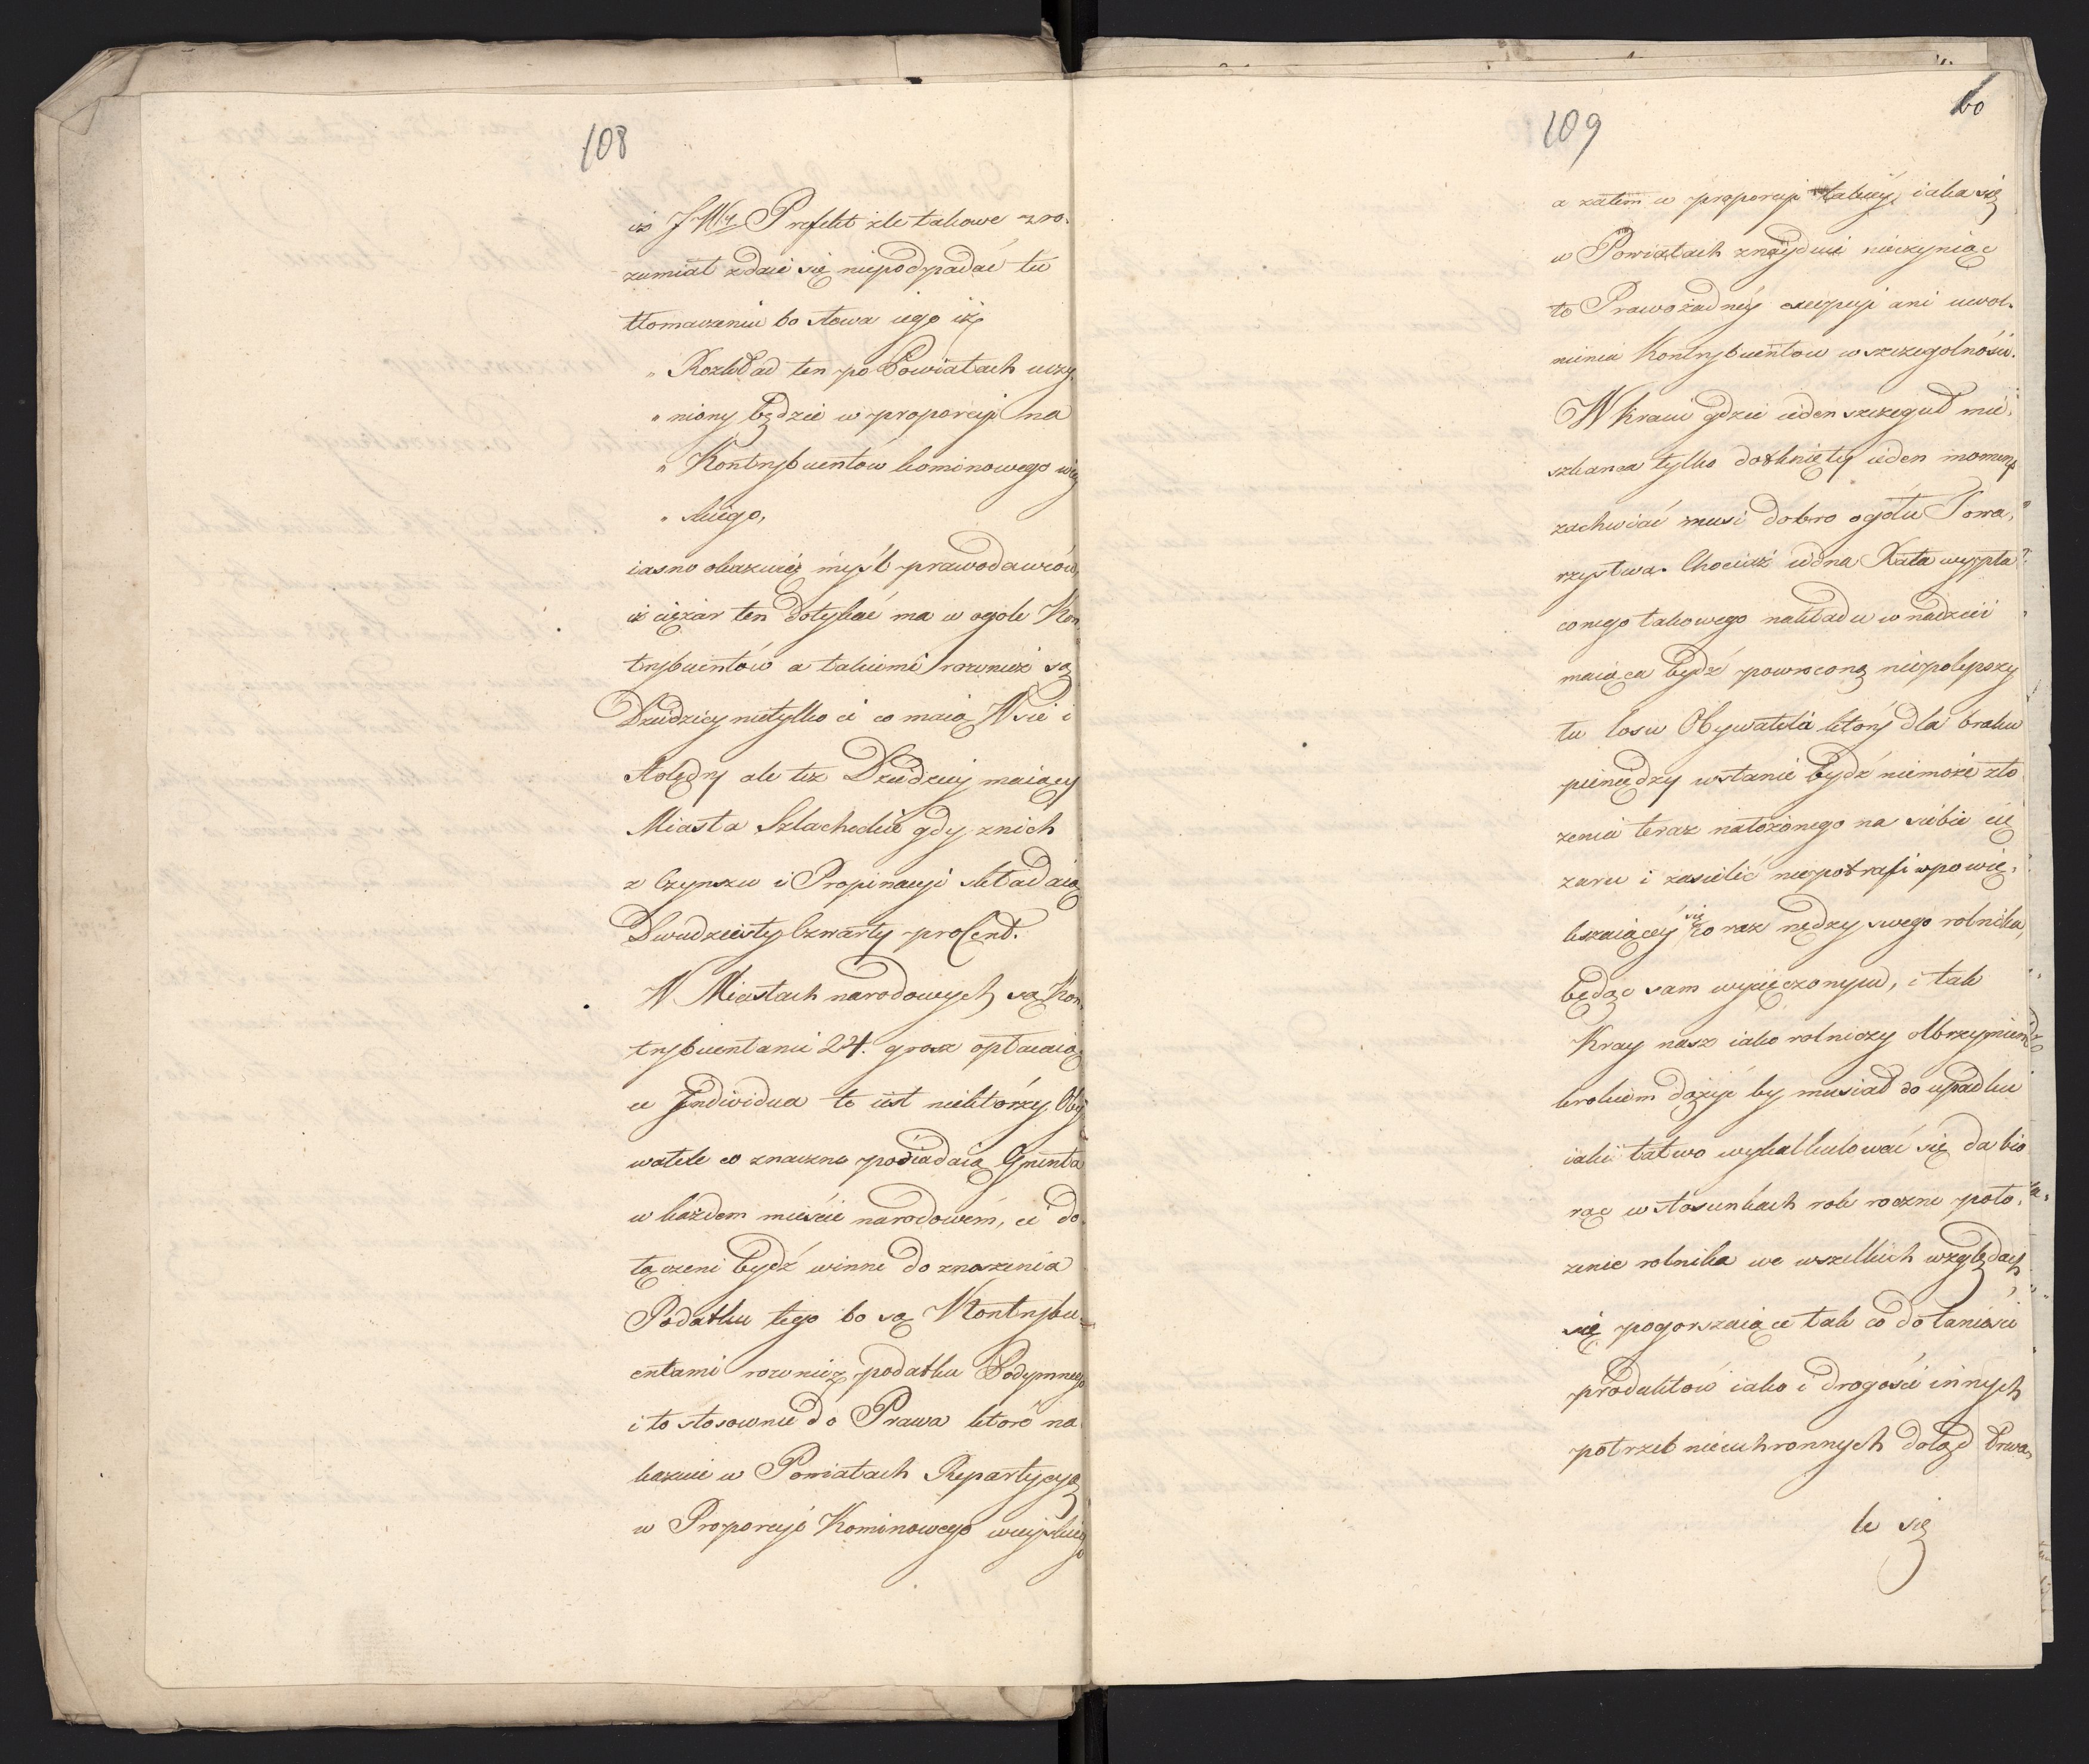 108
iż JWy Prefekt źle takowe zro-
zumiał zdaie się niepodpadać tu
tłomaczeniu bo słowa iego iż
„ Rozkład ten po Powiatach uczy
„ niony będzie w proporcyi na
„ Kontrybuentow kominowego wiey
„ skiego,
iasno okazuią myśl prawodawców,
iż ciężar ten dotykać ma w ogole Kon
trybuentów a takiemi rownież są
Dziedzicy nietylko ci co maią Wsie i
Kolędy ale też Dziedzicy maiący
Miasta Szlacheckie gdy z nich
z Czynszu i Propinacyi składaią
Dwudziesty Czwarty proCent.
W Miastach narodowych są Kon
trybuentami 24. grosz opłacaią
ce Individua to iest niektórzy Oby
watele co znaczne posiadaią Grunta
w każdem mieście narodowém, ci do
łączeni bydź winni do znoszenia
Podatku tego bo są Kontrybu-
entami rownież podatku Podymnego
i to stosownie do Prawa które na
kazuie w Powiatach Repartycyą
w Proporcyi Kominowego wieyskiego
109
60
a zatém w proporcyi takiéy iaka się
w Powiatach znayduie nieczyniąc
to Prawo żadnéy excepcyi ani uwol-
nienia Kontrybuentow w szczegolności.
W kraiu gdzie ieden szczeguł mie-
szkańca tylko dotknięty ieden moment
zachwiać musi dobro ogółu Towa-
rzystwa. Chociaż iedna Rata wypła
conego takowego nakładu w nadziei
maiąca bydź powroconą niepolepszy
tu losu Obywatela który dla braku
pieniędzy w stanie bydź niemoże zło
żenia teraz nałożonego na siebie cię
żaru i zasilić niepotrafi w powię-
kszaiącéy się co raz nędzy swego rolnika,
będąc sam wycięczonym, i tak
Kray nasz iako rolniczy olbrzymiem
krokiem dążyć by musiał do upadku
iaki łatwo wykalkulować się da bio
rąc w stosunkach rok roczne poło-
żenie rolnika we wszelkich względach
się pogorszaiące tak co do taniości
produktów iako i drogości innych
potrzeb nieuchronnych dotąd trwa,
le się